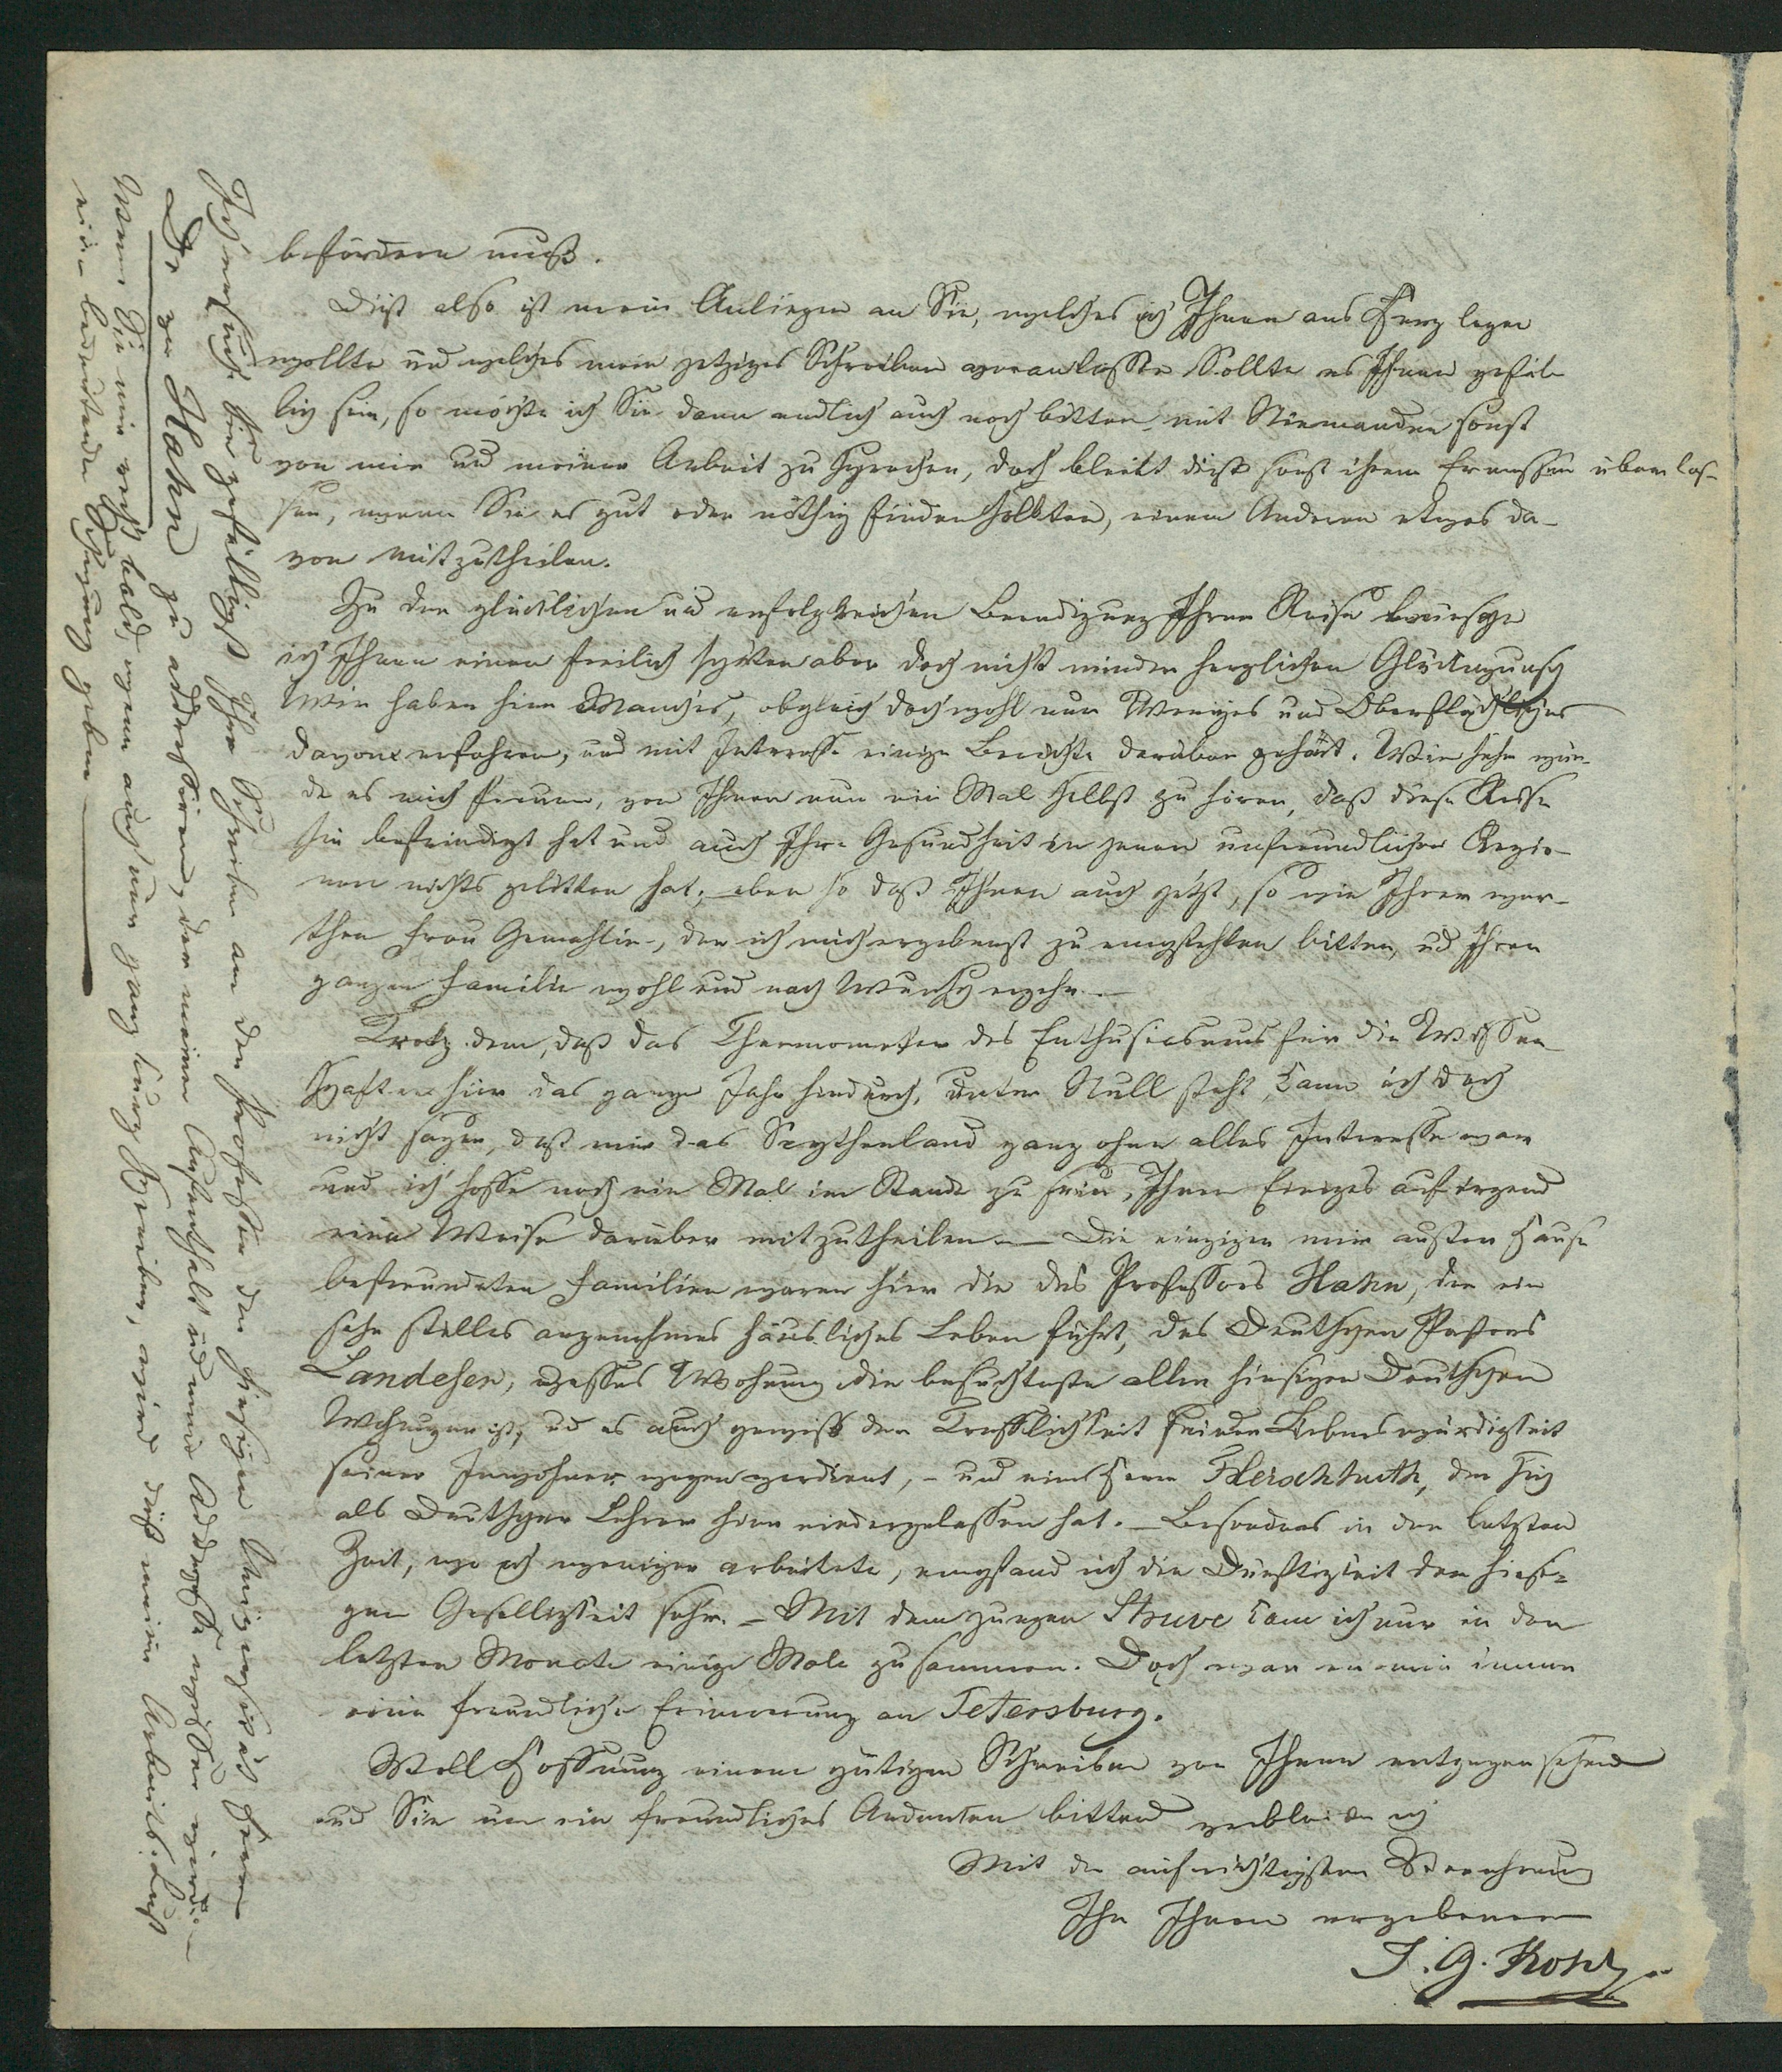 befördern muß.
Dieß also ist mein Anliegen an Sie, welches ich Ihnen ans Herz legen
wollte und welches mein jetziges Schreiben veranlaßte. Sollte es Ihnen gefäl-
lig sein, so möchte ich Sie dann endlich auch noch bitten, mit Niemanden sonst
von mir und meiner Arbeit zu sprechen, doch bleibt dieß sonst ihrem Ermessen überlas-
sen, wenn Sie es gut oder nöthig finden sollten, einem Anderen etwas da-
von mitzutheilen.
Zu der glücklichen und erfolgreichen Beendigung Ihrer Reise bringe
ich Ihnen einen freilich späten aber doch nicht minder herzlichen Glückwunsch
Wir haben hier Manches, obgleich doch wohl nur Weniges und Oberflächliches
davon erfahren, und mit Interesse einige Berichte darüber gehört. Wie sehr wür-
de es mich freuen, von Ihnen nun ein Mal selbst zu hören, daß diese Reise
Sie befriedigt hat und auch Ihre Gesundheit in jenen unfreundlichen Regio-
nen nichts gelitten hat, eben so daß Ihnen auch jetzt, so wie Ihrer wer-
then Frau Gemahlin, der ich mich ergebenst zu empfehlen bitte, und Ihrer
ganzen Familie wohl und nach Wunsch ergehe. —
Trotz dem, daß das Thermometer des Enthusiasmus für die Wissen
schaften hier das ganze Jahr hindurch, unter Null steht, kann ich doch
nicht sagen, daß mir das Scythenland ganz ohne alles Interesse war
und ich hoffe noch ein Mal im Stande zu sein, Ihnen Einiges auf irgend
eine Weise darüber mitzutheilen. — Die einzigen mir außer Hause
befreundeten Familien waren hier die des Professors Hahn, der ein
sehr stilles angenehmes häusliches Leben führt, des Deutschen Pastors
Landesen, dessen Wohnung die besuchteste aller hiesigen Deutschen
Wohnungen ist, und es auch gewiß der Trefflichkeit und Liebenswürdigkeit
seiner Inwohner wegen verdient, – und eines Herrn, der sich
als Deutscher Lehrer hier niedergelassen hat. – Besonders in der letzten
Zeit, wo ich weniger arbeitete, empfand ich die Dürftigkeit der hiesi-
gen Geselligkeit sehr. – Mit dem jungen Struve kam ich nur in den
letzten Monate einige Male zusammen. Doch war er mir immer
eine freundliche Erinnerung an Petersburg.
Voll Hoffnung einem gütigen Schreiben von Ihnen entgegen sehend
und Sie um ein freundliches Andenken bittend verbleibe ich
Mit der aufrichtigsten Verehrung
Ihr Ihnen ergebener
J. G. Kohl
Ich ersuche Sie gefälligst Ihr Schreiben an den Professor der hiesigen Universität Herrn
Dr von Hahn zu addressiren, der meinen Aufenthalt und meine Addresse wissen wird. –
Wenn Sie mir recht bald, wenn auch nur ganz kurz schreiben, wird dieß meiner Arbeitslust
einen bedeutenden Schwung geben —